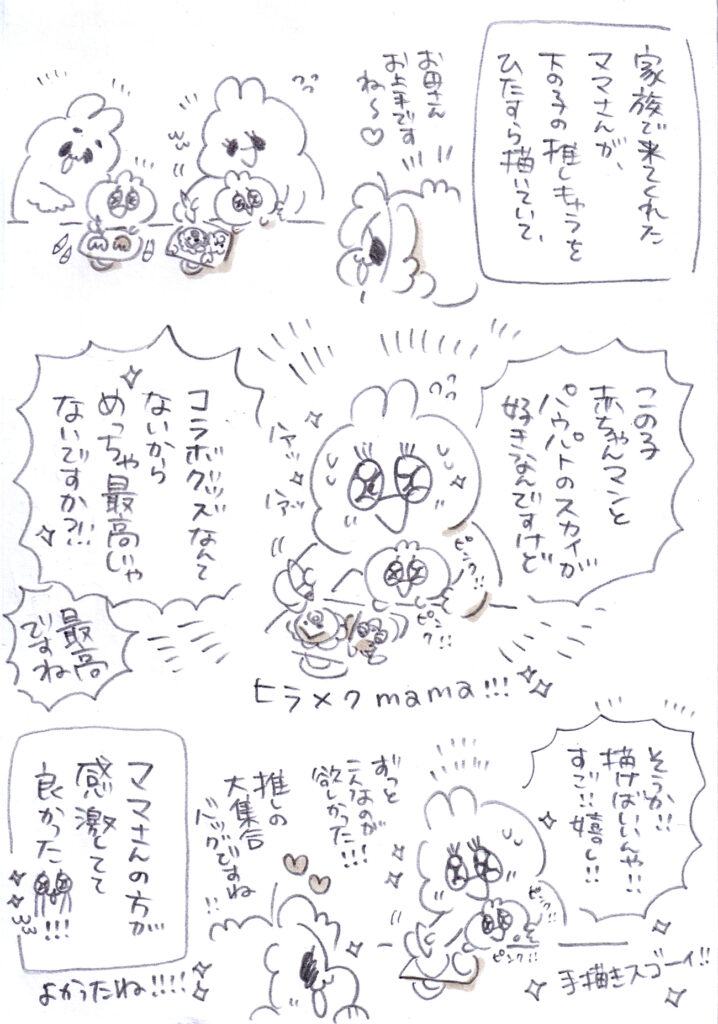 家族で来てくれた
ママさんが、
下の子の推しキャラを
ひたすら描いていて、
お母さん
お上手です
ね〜♡
この子
赤ちゃんマンと
パウパトのスカイが
好きなんですけど
コラボグッズなんて
ないから
めっちゃ最高じゃ
ないですか?!!
ハァッ
ハァッ
ピンク!!
ピンク!!
最高
ですね
ヒラメクmama!!!
そうか!!
描けばいいんや!!
すご!!嬉し!!
ずっと
こんなのが
欲しかった!!!
推しの
大集合
バッグですね
!!
ピンク!!
ピンク!!
手描きスゴーイ!!
ママさんの方が
感激してて
良かった!!!
よかったね!!!!